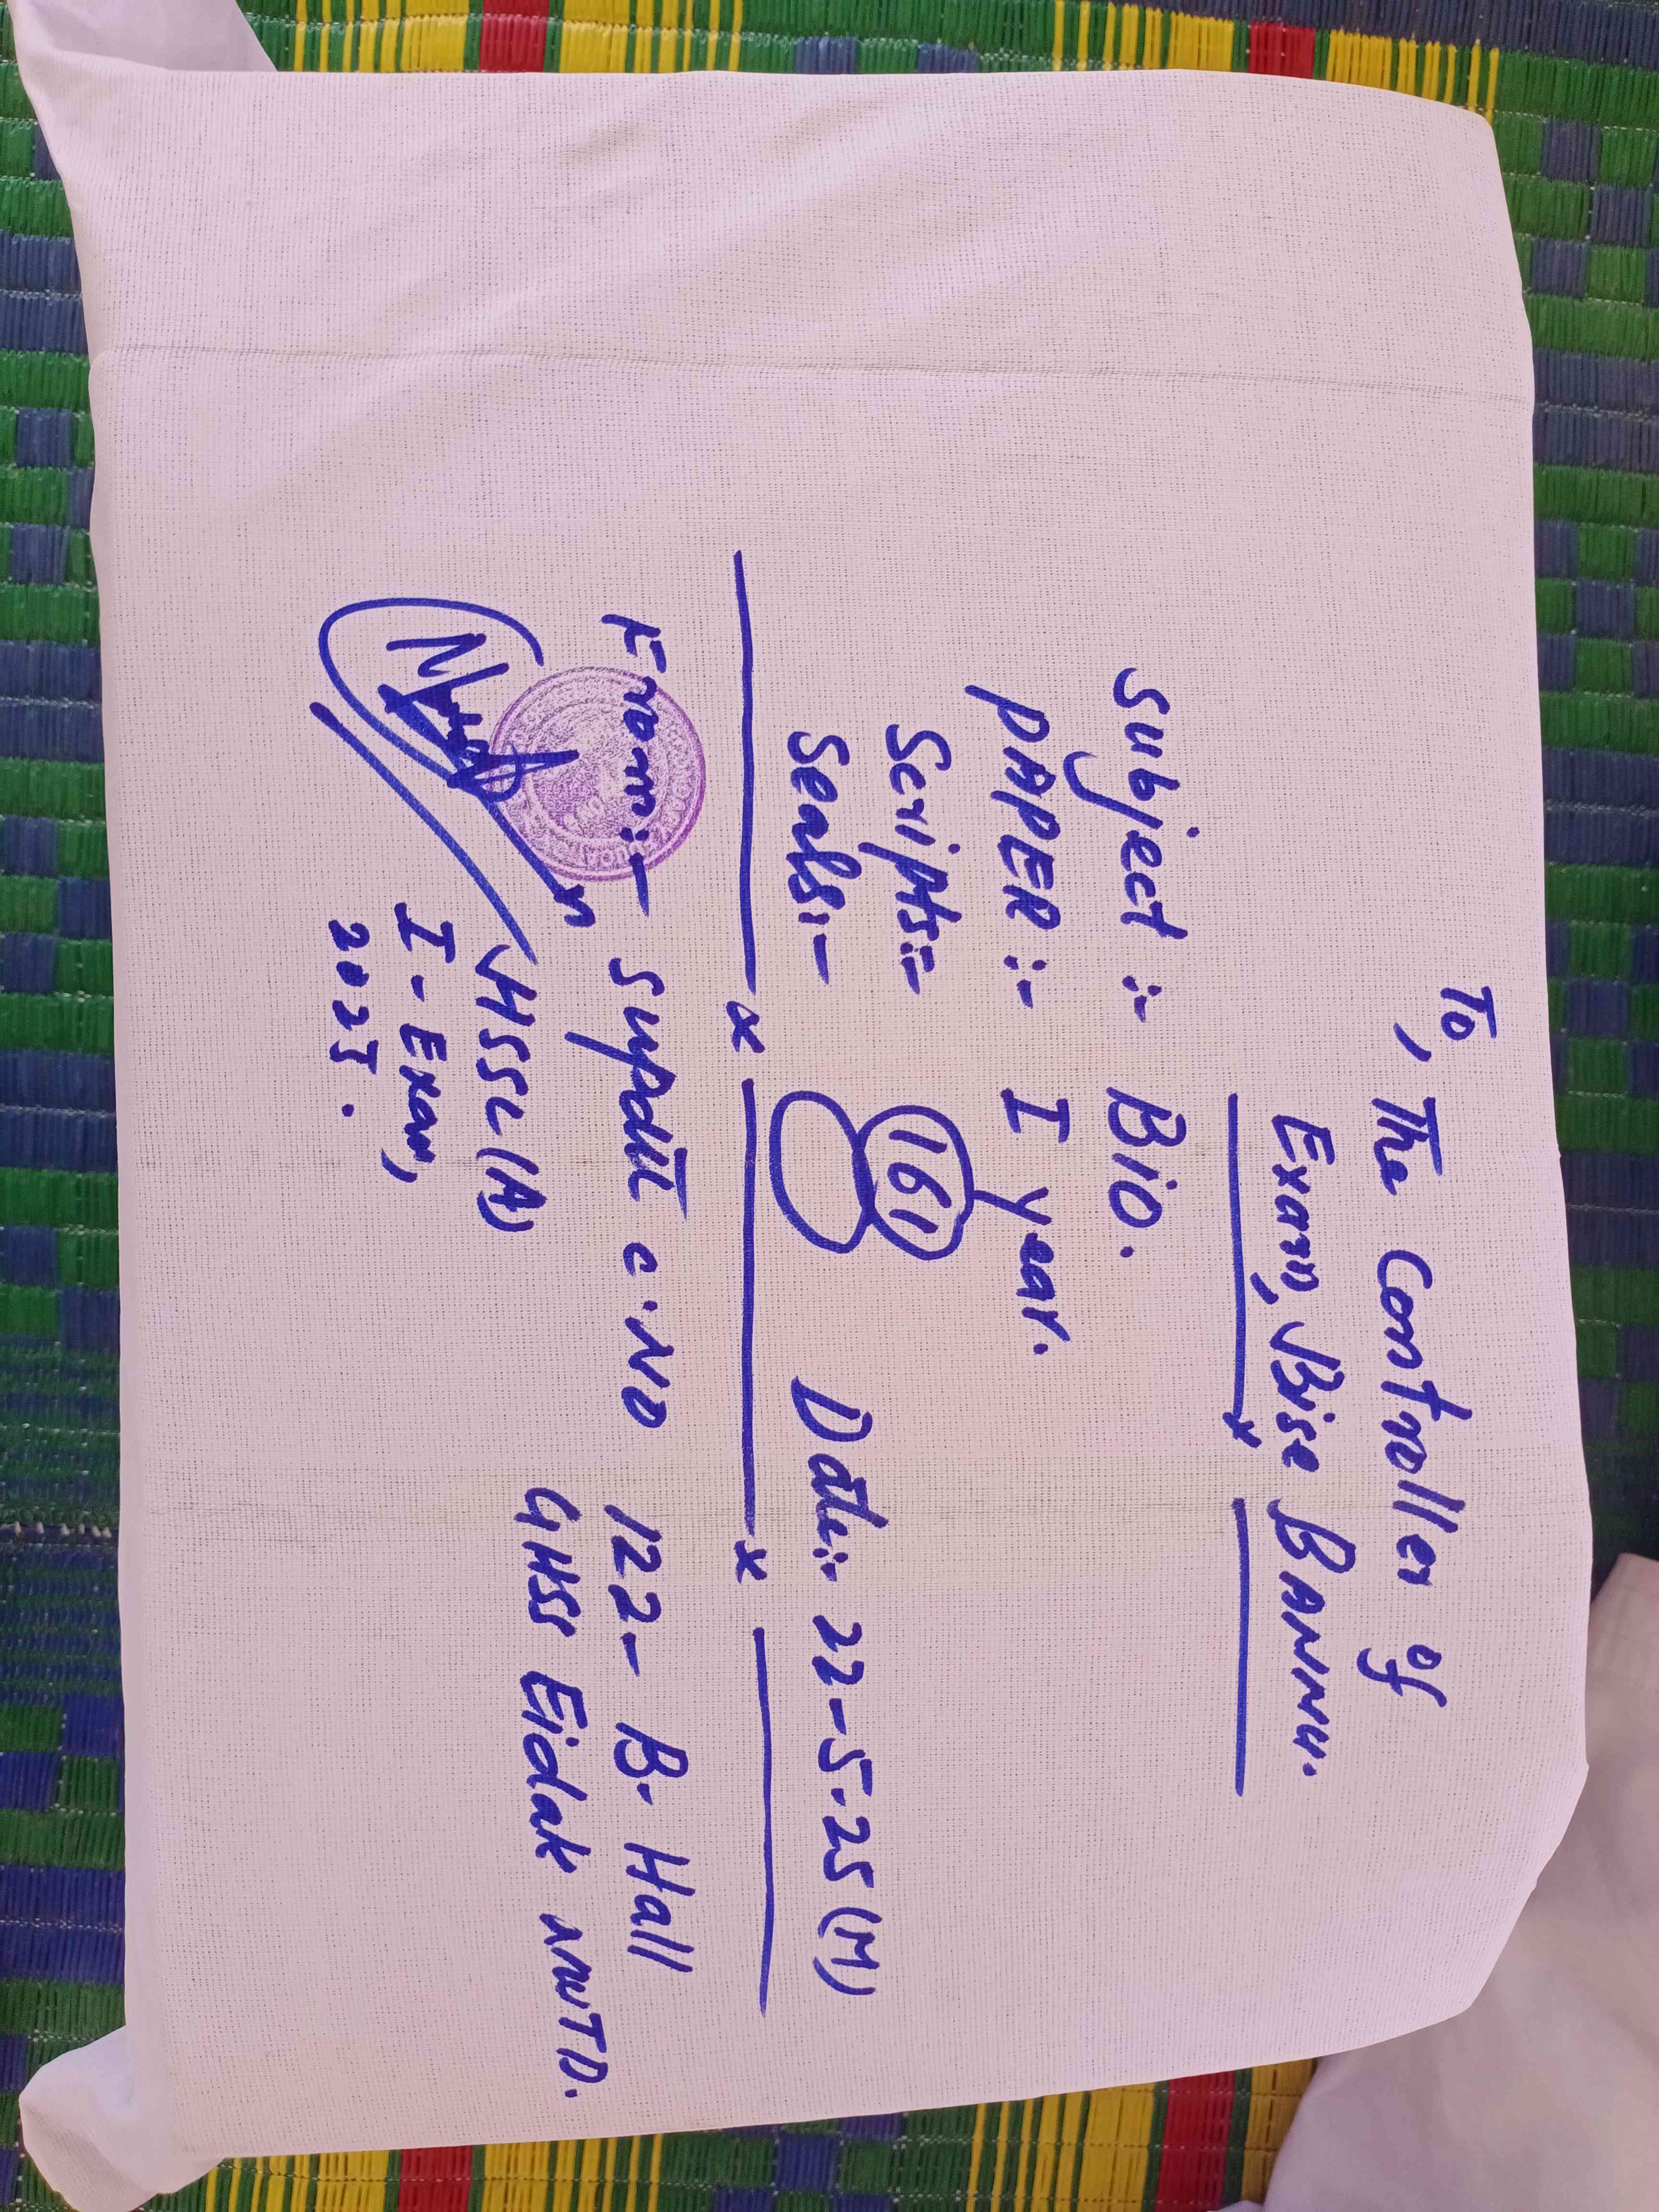 To, The Controller of
Exam, Bise BANNU.
Subject :- Bio.
PAPER :- I year.
Scripts:- 161
Seals:- Date:- 22-5-25 (M)
From:- Supdtt C.NO 122- B. Hall
GHSS Eidak NWTD.
HSSC (A)
I- Exam,
2025.